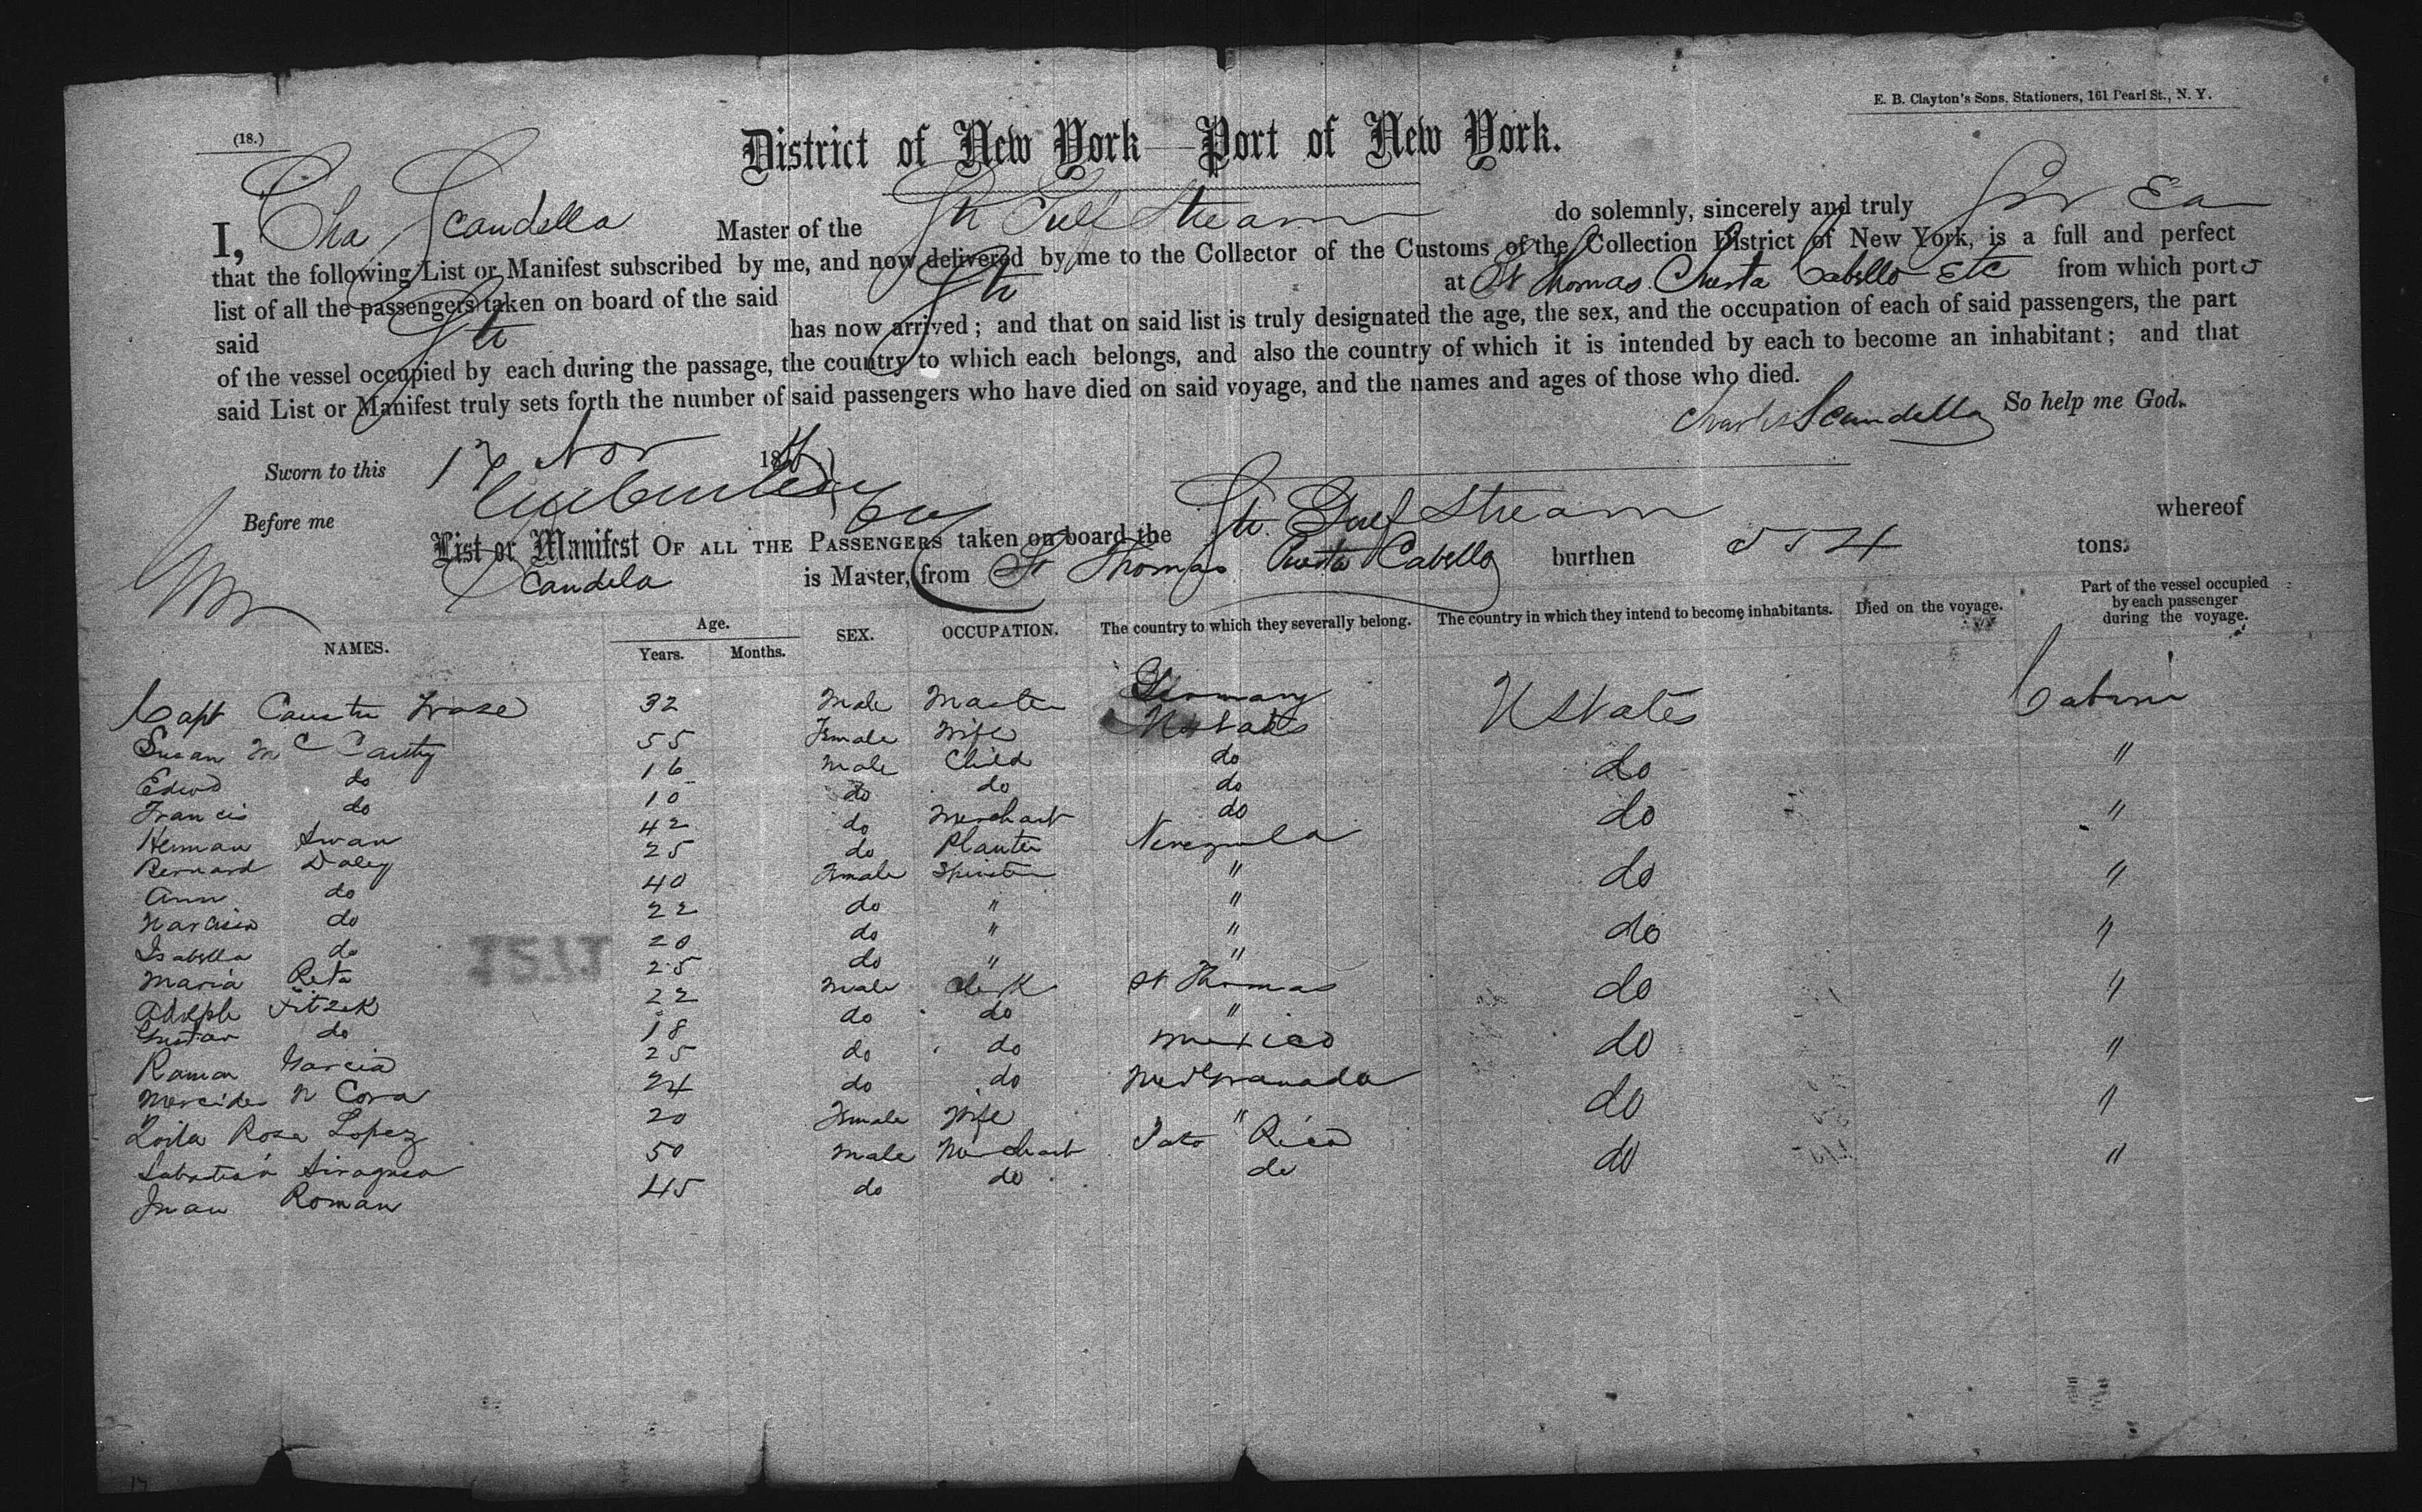 E. B. Clayton's Sons, Stationers, 161 Pearl St., N. Y.
(18.)
District of New York—Port of New York.
I, Cha Scandella Master of the Str Gulf Stream do solemnly, sincerely and truly
that the following List or Manifest subscribed by me, and now delivered by me to the Collector of the Customs of the Collection District of New York, is a full and perfect
list of all the passengers taken on board of the said Str at St Thomas. Puerto Cabello Etc from which ports
said Str has now arrived; and that on said list is truly designated the age, the sex, and the occupation of each of said passengers, the part
of the vessel occupied by each during the passage, the country to which each belongs, and also the country of which it is intended by each to become an inhabitant; and that
said List or Manifest truly sets forth the number of said passengers who have died on said voyage, and the names and ages of those who died.
Charles Scandella So help me God.
Sworn to this 17 Nov 18
Before me
List or Manifest OF ALL THE PASSENGERS taken on board the Str. Gulf Stream whereof
Scandela is Master, from St Thomas Puerto Cabello burthen 554 tons.
NAMES. Age. Years. Months. SEX. OCCUPATION. The country to which they severally belong. The country in which they intend to become inhabitants. Died on the voyage. Part of the vessel occupied by each passenger during the voyage.
Capt 32 Male Master Germany U States Cabin
Susan McCarthy 55 Female Wife U States do "
Edwd do 16 Male Child do
Francis do 10 do do do do "
Herman Swan 42 do Merchant do
Bernard Daley 25 do Planter Venezuela do "
Ann do 40 Female Spinster "
Narcisia do 22 do " " do "
Isabella do 20 do " "
Maria Rita 25 do " " do "
Adolph Fitzek 22 Male Clerk St Thomas
Gustav do 18 do do " do "
Ramon Garcia 25 do do Mexico
Mercides N Cora 24 do do New Granada do "
Zoila Rosa Lopez 20 Female Wife "
Sabastian Siragusa 50 Male Merchant Porto Rico do "
Juan Roman 45 do do do